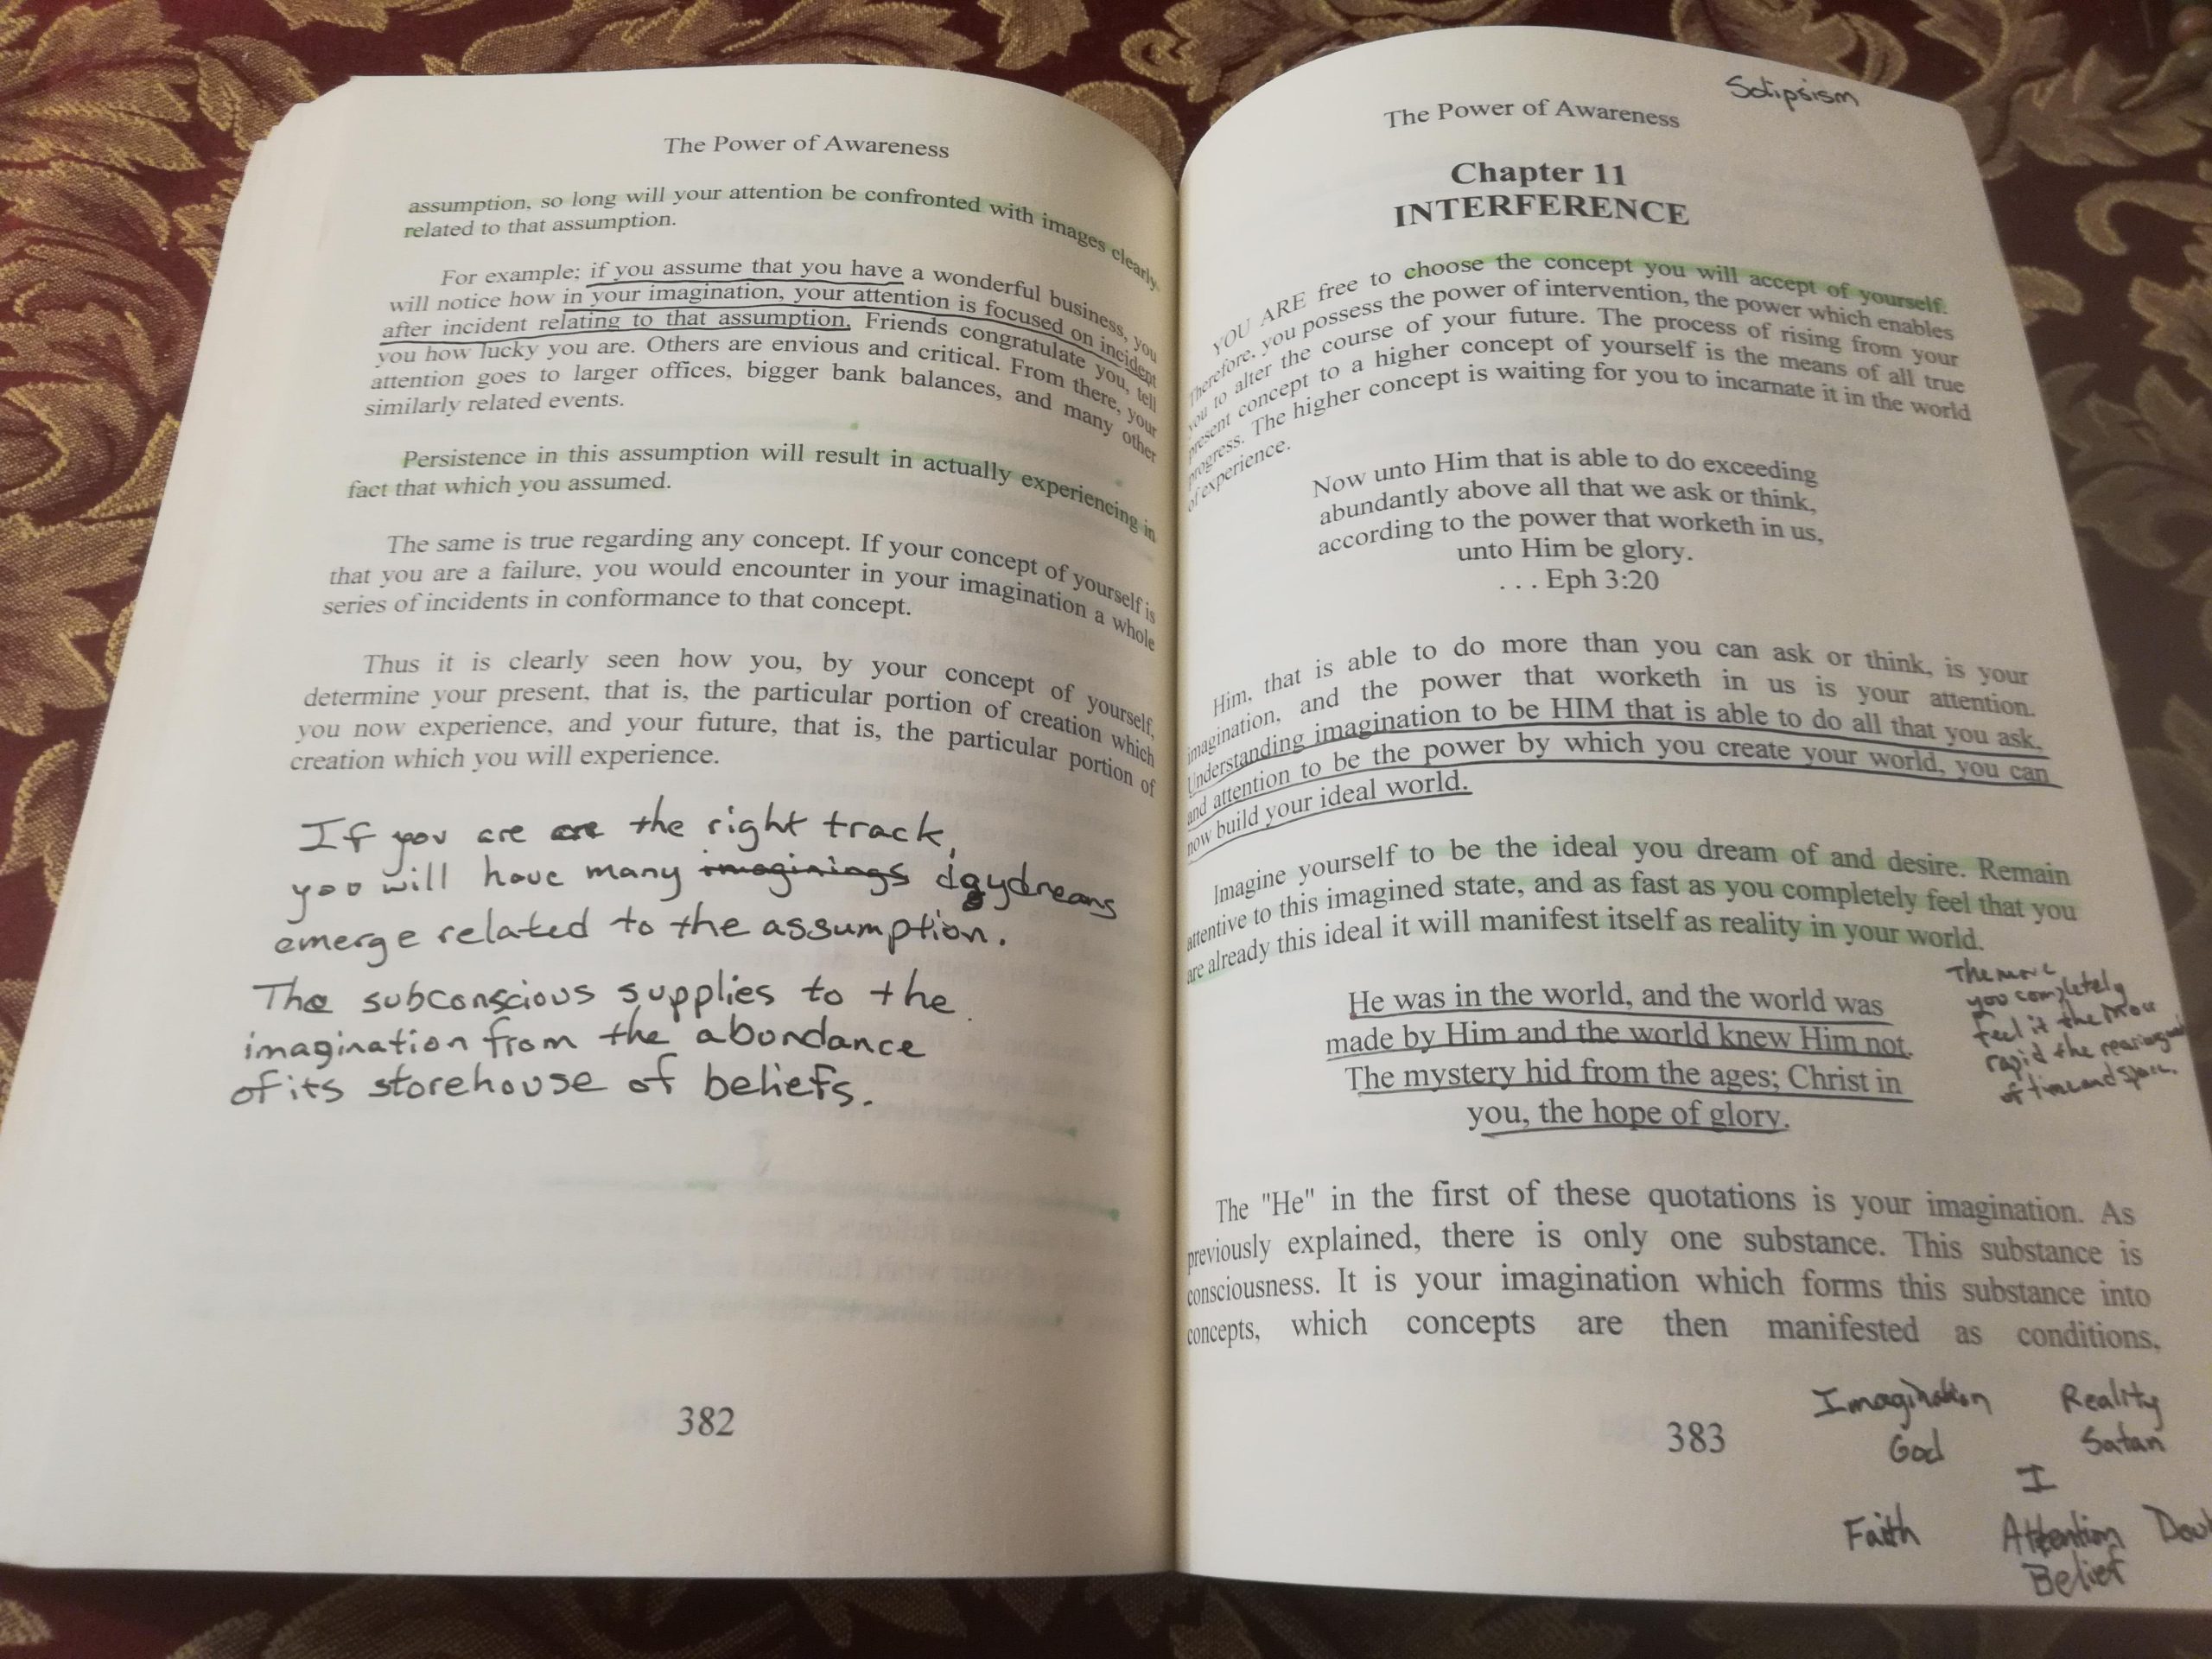 The Power of Awareness
assumption, so long will your attention be confronted with images clearly
related to that assumption.
For example; if you assume that you have a wonderful business, you
will notice how in your imagination, your attention is focused on incident
after incident relating to that assumption. Friends congratulate you, tell
you how lucky you are. Others are envious and critical. From there, your
attention goes to larger offices, bigger bank balances, and many other
similarly related events.
Persistence in this assumption will result in actually experiencing in
fact that which you assumed.
The same is true regarding any concept. If your concept of yourself is
that you are a failure, you would encounter in your imagination a whole
series of incidents in conformance to that concept.
Thus it is clearly seen how you, by your concept of yourself,
determine your present, that is, the particular portion of creation which
you now experience, and your future, that is, the particular portion of
creation which you will experience.
If you are are the right track,
you will have many imaginings daydreams
emerge related to the assumption.
The subconscious supplies to the
imagination from the abundance
of its storehouse of beliefs.
382
Solipsism
The Power of Awareness
Chapter 11
INTERFERENCE
YOU ARE free to choose the concept you will accept of yourself.
Therefore, you possess the power of intervention, the power which enables
you to alter the course of your future. The process of rising from your
present concept to a higher concept of yourself is the means of all true
progress. The higher concept is waiting for you to incarnate it in the world
of experience.
Now unto Him that is able to do exceeding
abundantly above all that we ask or think,
according to the power that worketh in us,
unto Him be glory.
. . . Eph 3:20
Him, that is able to do more than you can ask or think, is your
imagination, and the power that worketh in us is your attention.
Understanding imagination to be HIM that is able to do all that you ask,
and attention to be the power by which you create your world, you can
now build your ideal world.
Imagine yourself to be the ideal you dream of and desire. Remain
attentive to this imagined state, and as fast as you completely feel that you
are already this ideal it will manifest itself as reality in your world.
The more
you completely
feel it the more
rapid the
of time and space.
He was in the world, and the world was
made by Him and the world knew Him not.
The mystery hid from the ages; Christ in
you, the hope of glory.
The "He" in the first of these quotations is your imagination. As
previously explained, there is only one substance. This substance is
consciousness. It is your imagination which forms this substance into
concepts, which concepts are then manifested as conditions,
383
Imagination Reality
God Satan
I
Faith Attention
Belief